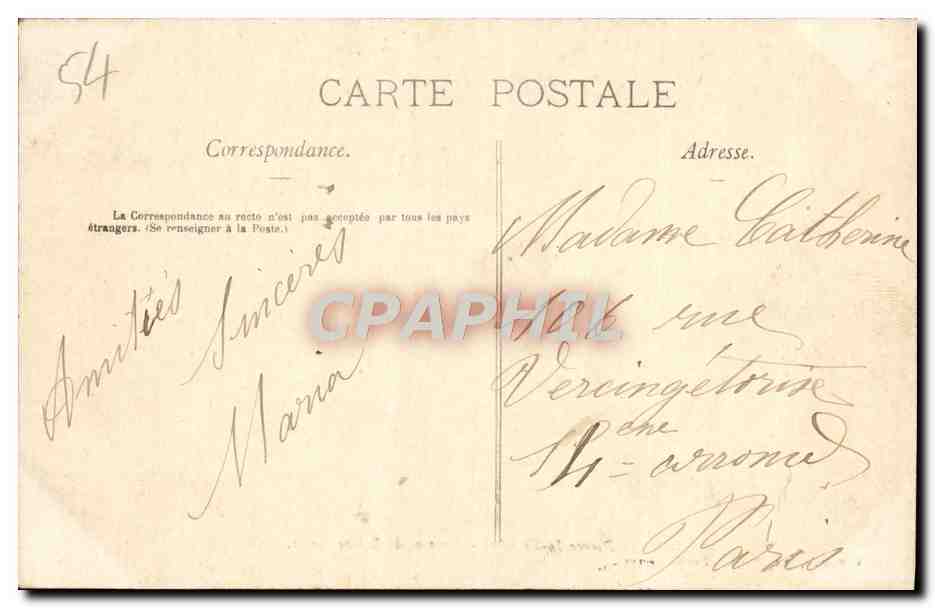 54
CARTE POSTALE
Correspondance.
La Correspondance au recto n'est pas acceptée par tous les pays
étrangers. (Se renseigner à la Poste.)
Amitiés
Sincères
Maria
Adresse.
Madame Catherine
106 rue
Vercingétorise
14 ème arrond
Paris
CPAPHIL